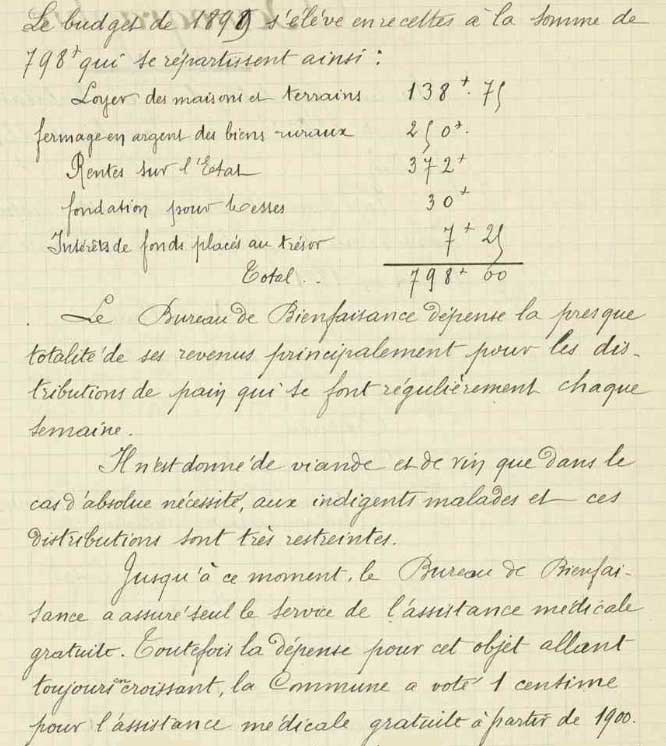 Le budget de 1899 s'élève en recettes à la somme de
798f qui se répartissent ainsi :
Loyer des maisons et terrains 138f.75
fermage en argent des biens ruraux 250f.
Rentes sur l'Etat 372f
fondation pour messes 30f
Intérêts de fonds placés au trésor 7f 25
Total .. 798f 00
Le Bureau de Bienfaisance dépense la presque
totalité de ses revenus principalement pour les dis-
tributions de pain qui se font régulièrement chaque
semaine.
Il n'est donné de viande et de vin que dans le
cas d'absolue nécessité, aux indigents malades et ces
distributions sont très restreintes.
Jusqu'à ce moment, le Bureau de Bienfai-
sance a assuré seul le service de l'assistance médicale
gratuite. Toutefois la dépense pour cet objet allant
toujours en croissant, la Commune a voté 1 centime
pour l'assistance médicale gratuite à partir de 1900.